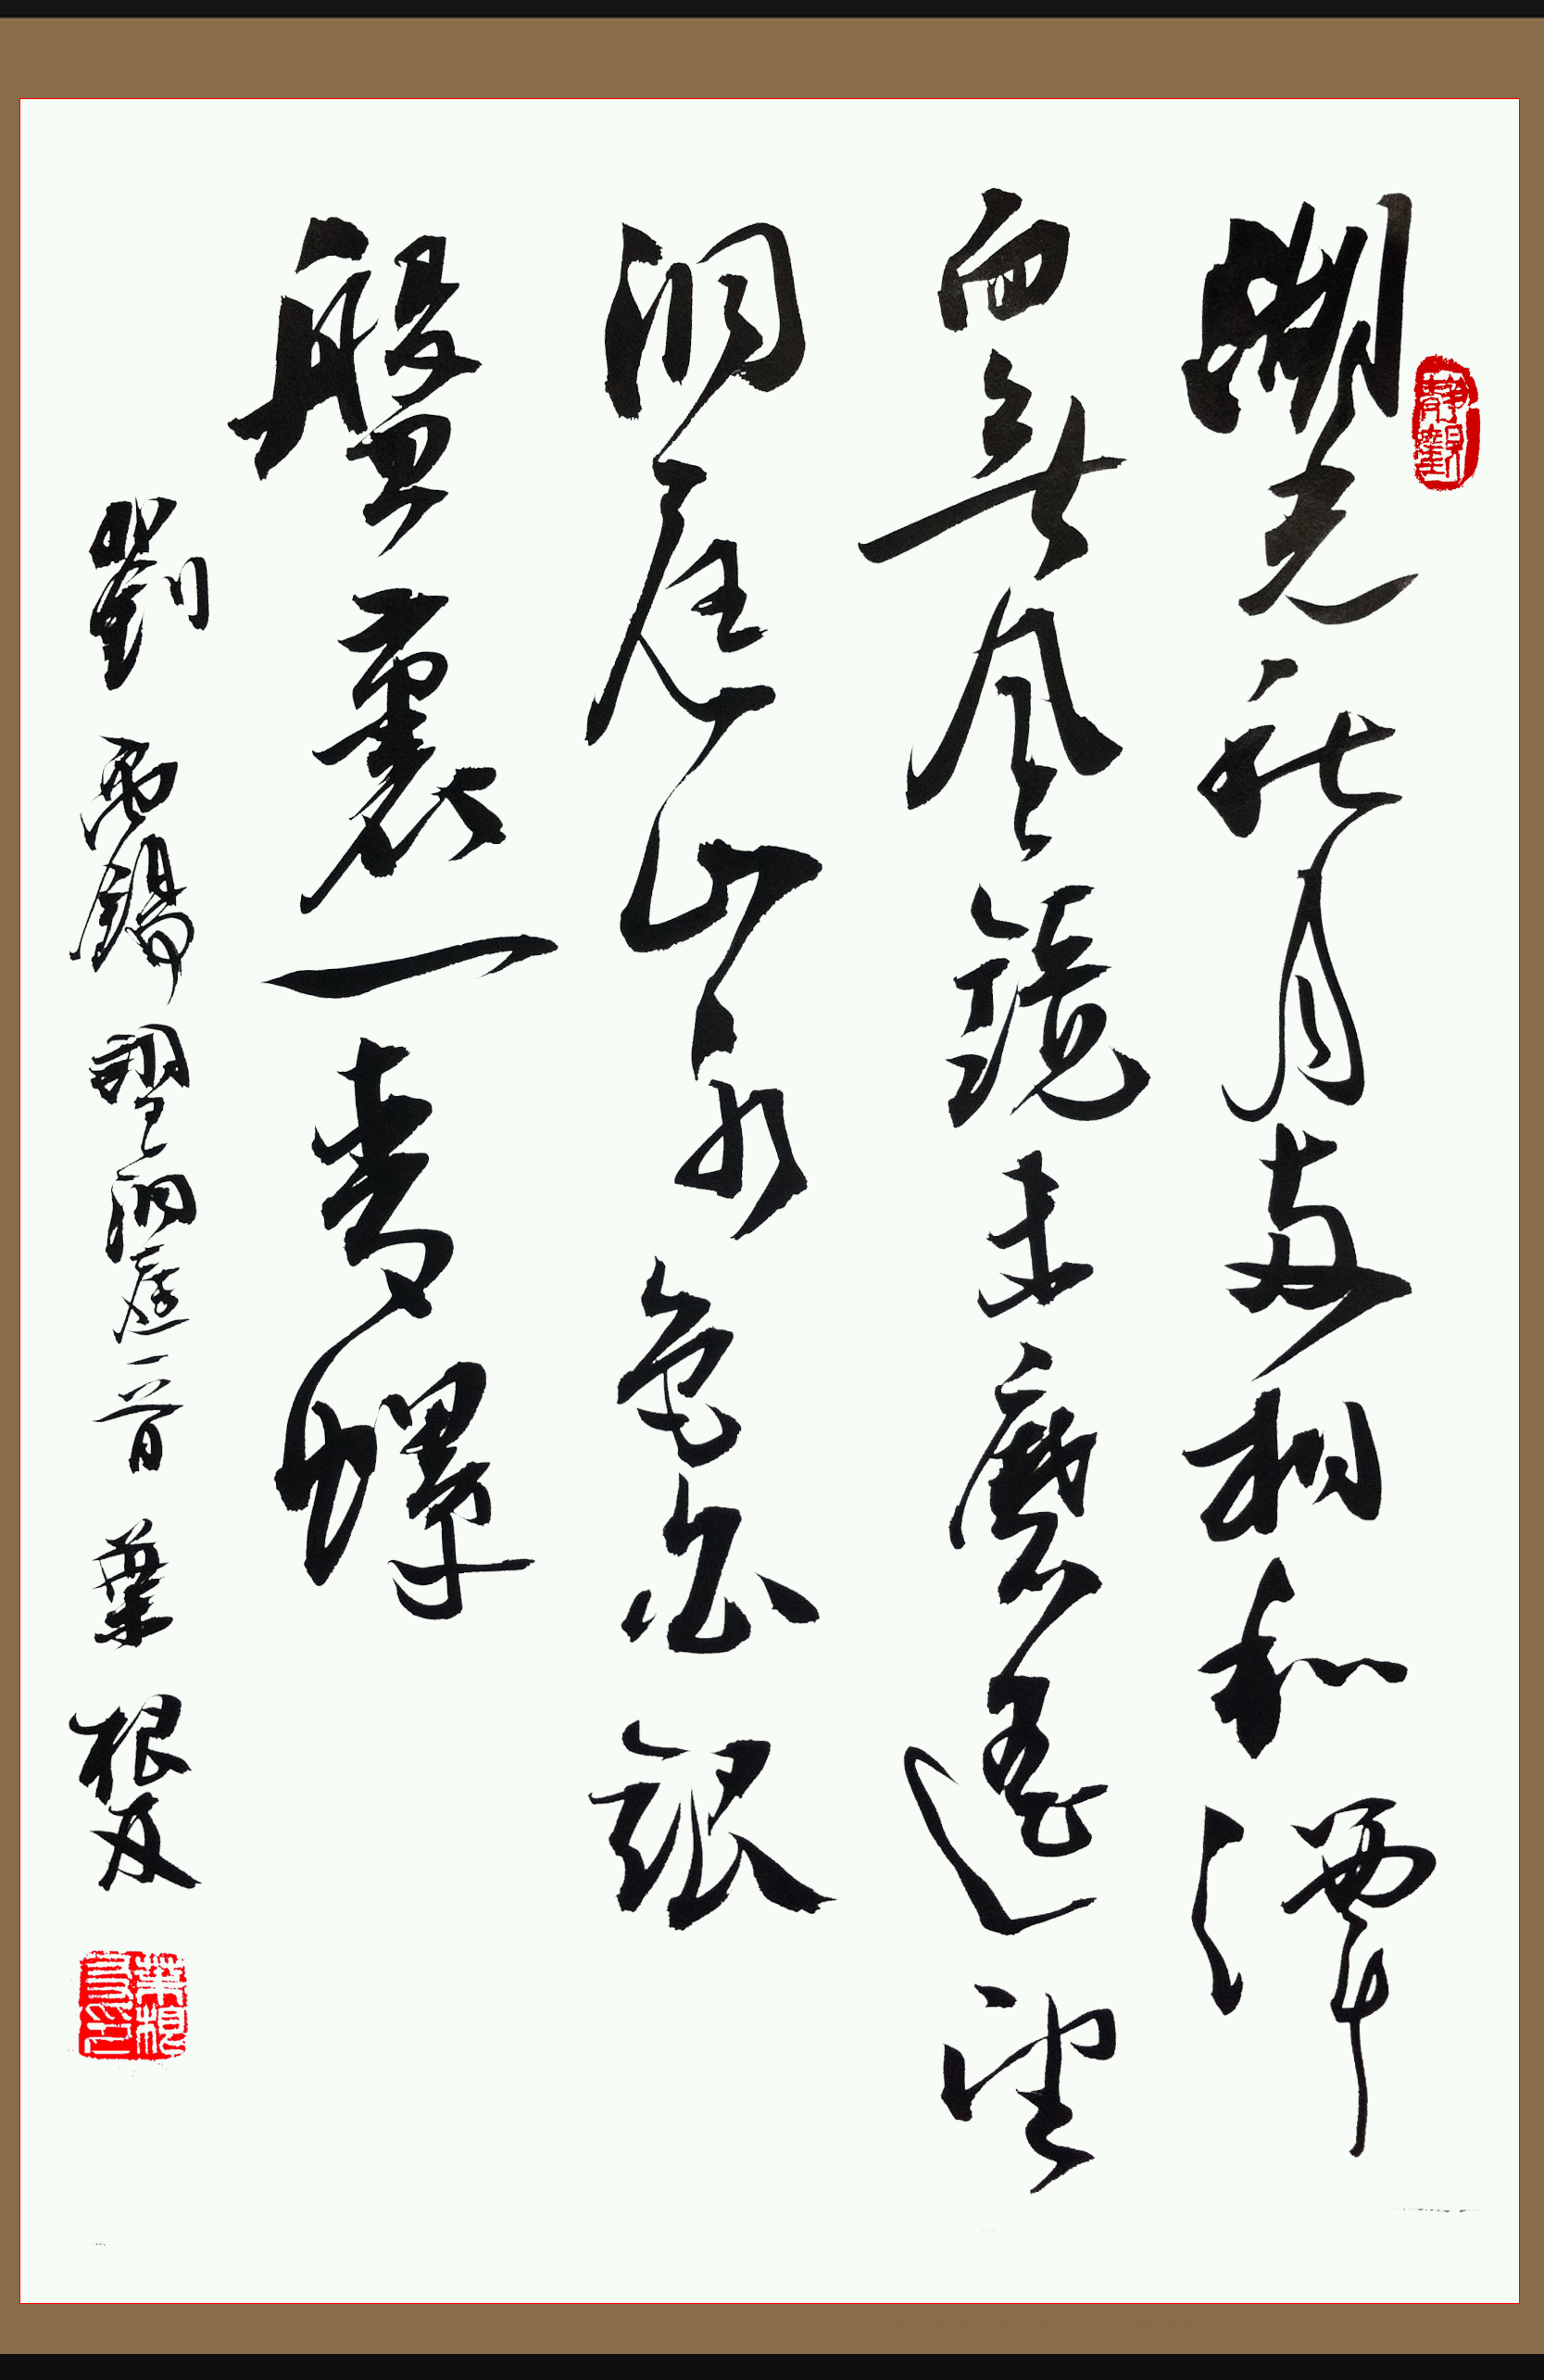 靜觀
湖光秋月兩相和潭
面無風鏡未磨遙望
洞庭山水色白銀
盤裏一青螺
劉禹錫望洞庭一首 葉根友
葉根友印